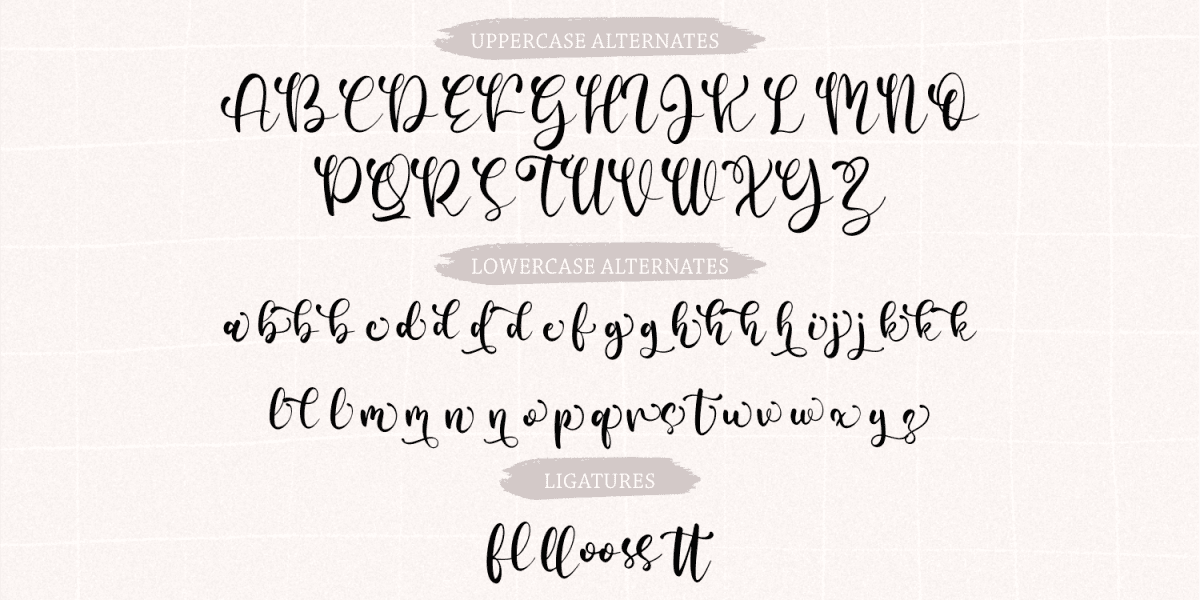 UPPERCASE ALTERNATES
ABCDEFGHIJKLMNO
PQRSTUVWXYZ
LOWERCASE ALTERNATES
abbbcddddefgghhhhijjkkk
lllmmnnopqrstuvwxyz
LIGATURES
fllloosstt